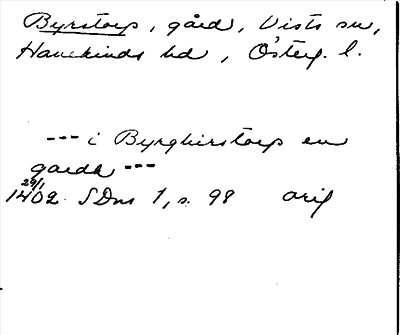 Byrstorp, gård, Vists sn,
Hanekinds hd, Österg. l.
--- i Byrghirstorp en
gardh ---
29/1
1402. SDns 1, s. 98 orig